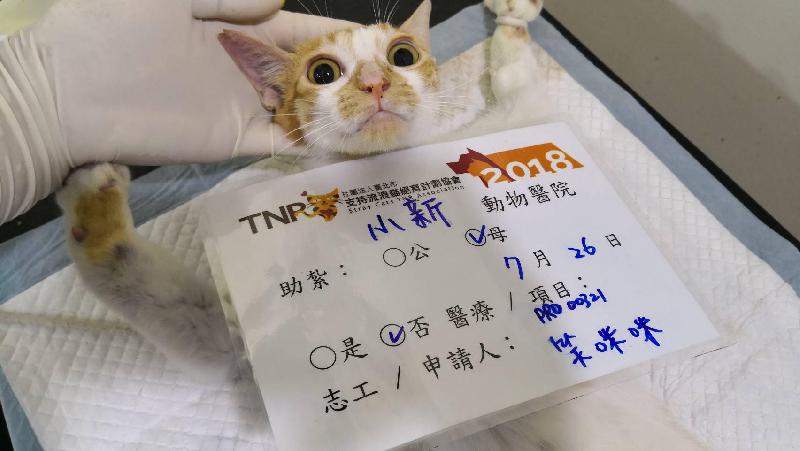 TNR 社團法人臺北市
支持流浪貓絕育計劃協會
Stray Cats TNR Association
2018
小新 動物醫院
助紮： ○公 ✓母 7月26日
○是 ✓否 醫療 / 項目：
00321
志工 / 申請人： 笑咪咪